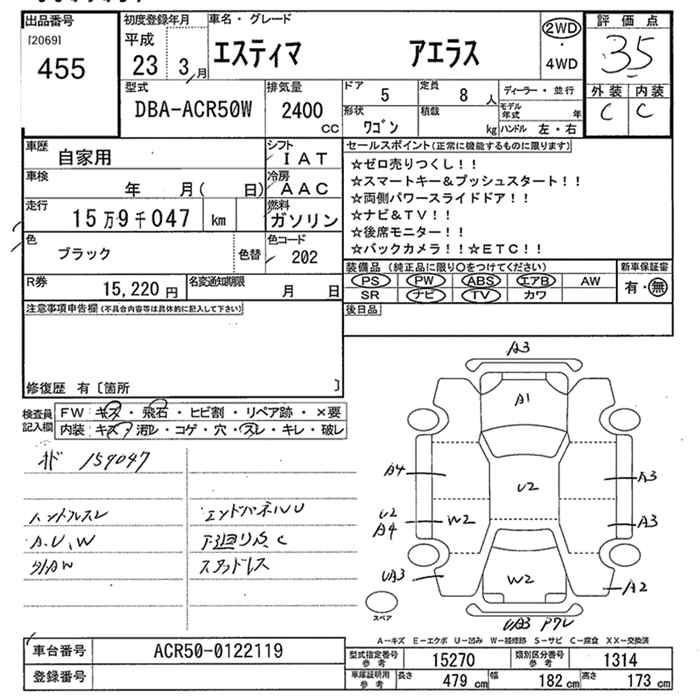 出品番号
[2069]
455
初度登録年月
平成
23 3月
車名・グレード
エスティマ アエラス
2WD
・
4WD
評価点
3.5
外装 内装
C C
型式
DBA-ACR50W
排気量
2400
cc
ドア 5
定員 8 人
形状 ワゴン
積載 kg
ディーラー・並行
モデル年式 年
ハンドル 左・右
車歴
自家用
シフト
I AT
車検
年 月( 日)
冷房
A AC
走行
15万9千047 km
燃料
ガソリン
色
ブラック
色替
色コード
202
R券
15,220 円
名変通知期限
月 日
セールスポイント(正常に機能するものに限ります)
☆ゼロ売りつくし!!
☆スマートキー&プッシュスタート!!
☆両側パワースライドドア!!
☆ナビ&TV!!
☆後席モニター!!
☆バックカメラ!!☆ETC!!
装備品(純正品に限り○をつけてください)
新車保証書
PS PW ABS エアB AW
SR ナビ TV カワ
有・無
後日品
注意事項申告欄(不具合内容等は具体的に記入して下さい)
修復歴 有〔箇所 〕
検査員記入欄
FW キズ・飛石・ヒビ割・リペア跡・×要
内装 キズ・汚レ・コゲ・穴・スレ・キレ・破レ
メド 159047
ハンドルスレ
A.U.W
エンドパネルU
下廻りS.C
スタッドレス
A3
A1
A4
U2
A3
U2
A4
W2
A3
UA3
W2
A2
UA3 ワレ
スペア
A-キズ E-エクボ U-凹み W-補修跡 S-サビ C-腐食 XX-交換済
車台番号
ACR50-0122119
登録番号
型式指定番号 参考
15270
類別区分番号 参考
1314
車庫証明用 参考
長さ 479 cm
幅 182 cm
高さ 173 cm